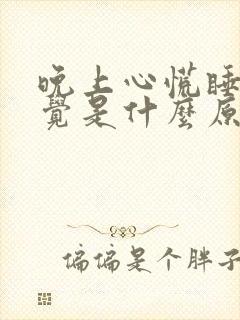 晚上心慌睡
覺是什麼原
偏偏是个胖子